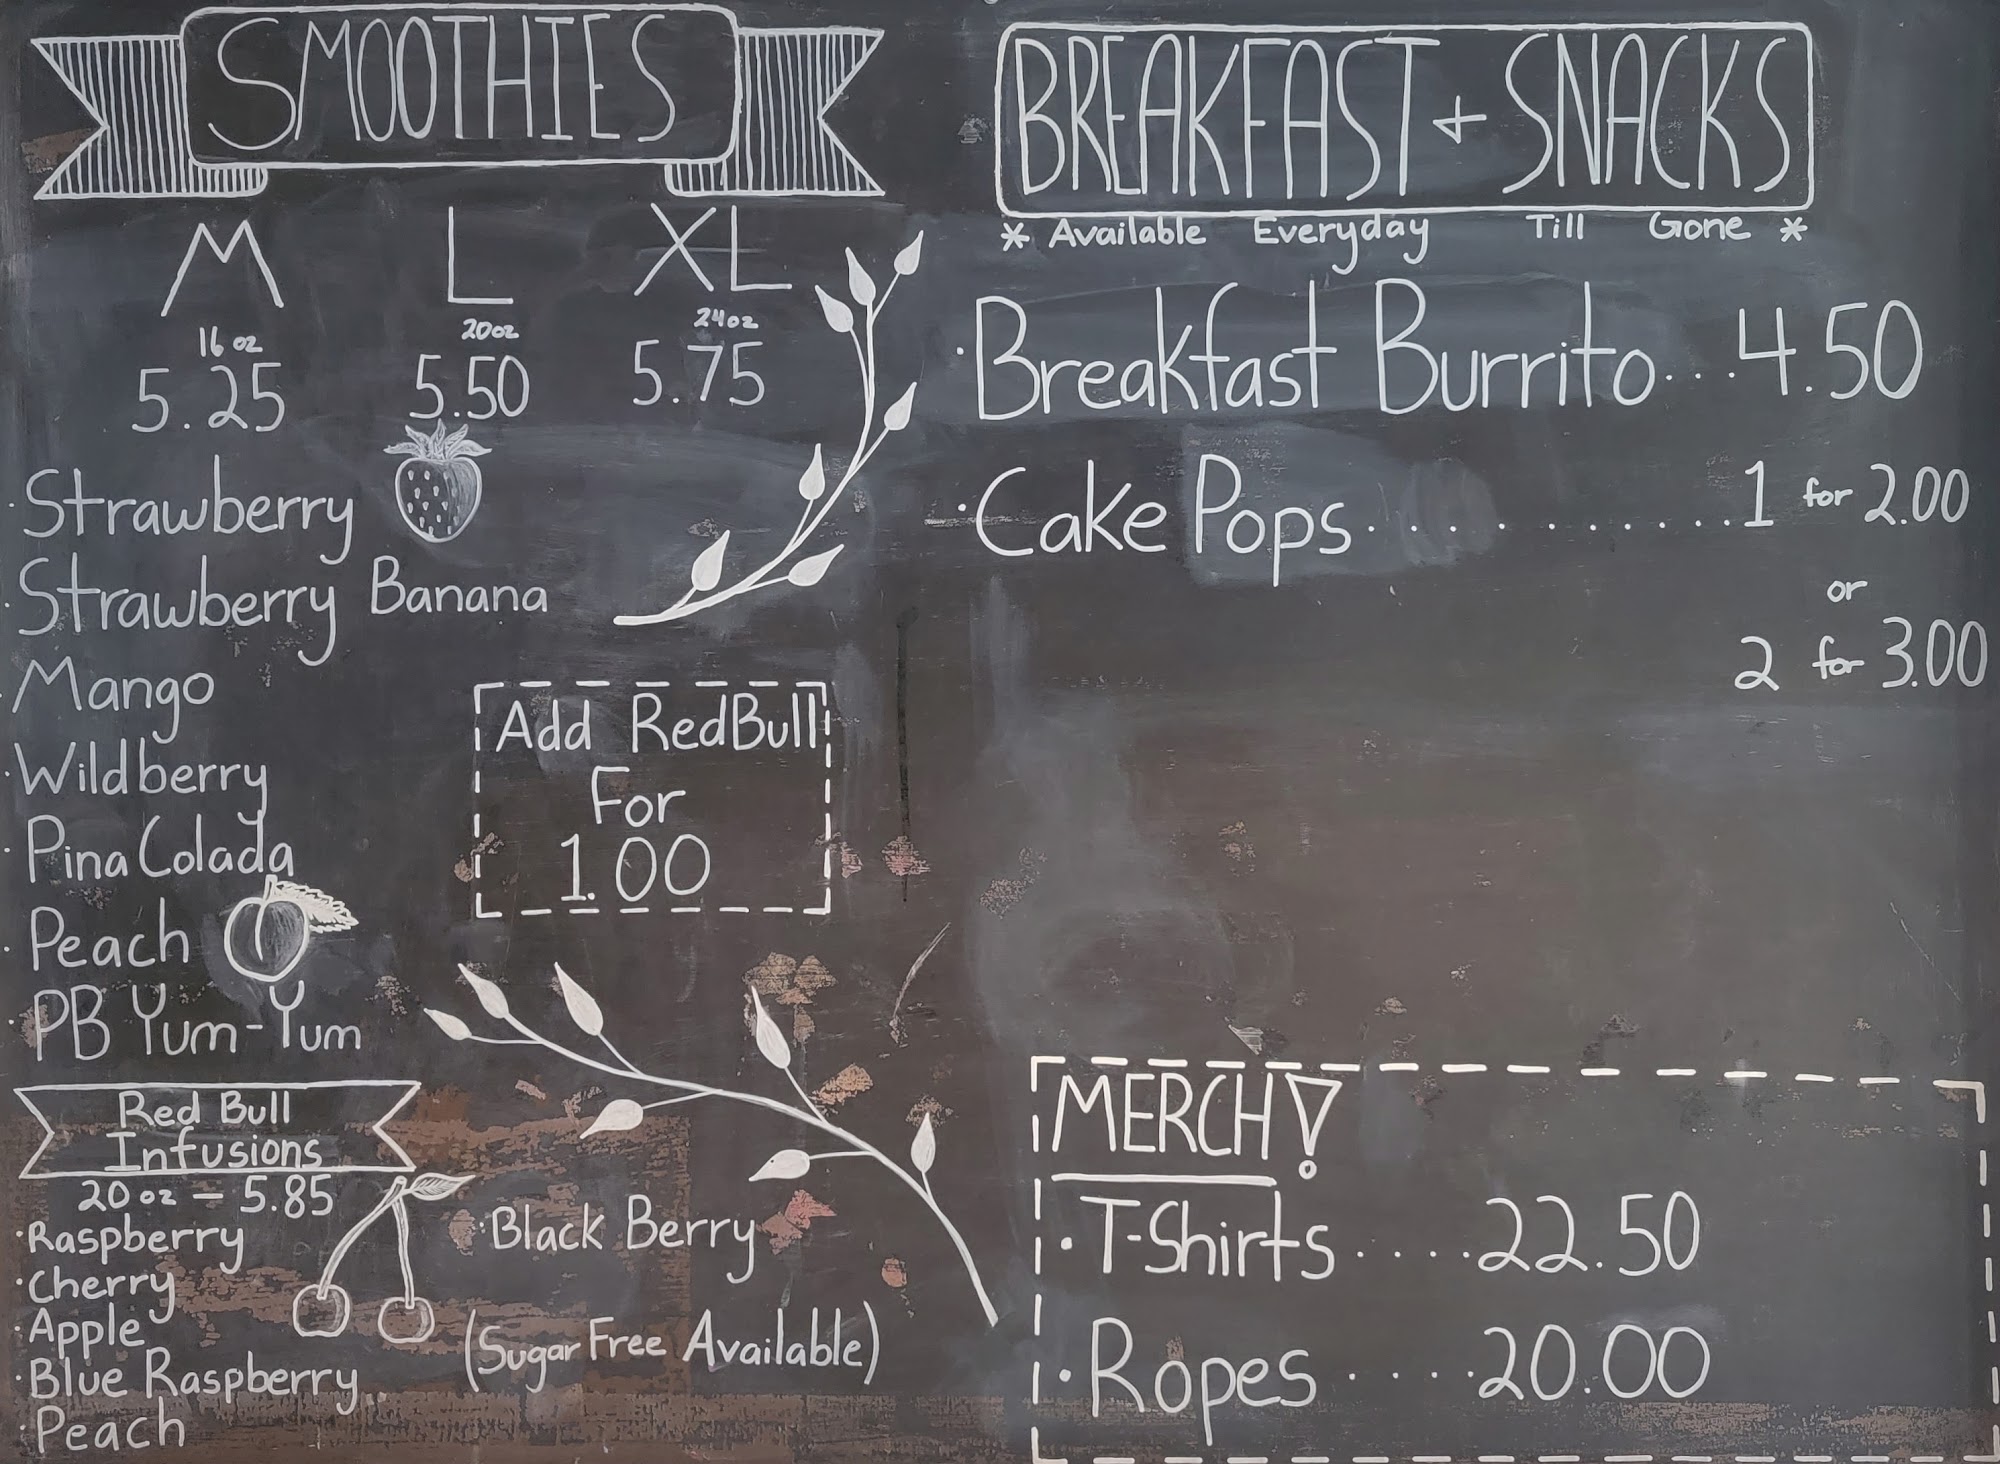 SMOOTHIES
M L XL
16 oz 20oz 24oz
5.25 5.50 5.75
· Strawberry
· Strawberry Banana
· Mango
· Wildberry
· Pina Colada
· Peach
· PB Yum-Yum
Add RedBull
For
1.00
Red Bull
Infusions
20 oz — 5.85
· Raspberry
· Cherry
· Apple
· Blue Raspberry
· Peach
· Black Berry
(Sugar Free Available)
BREAKFAST + SNACKS
* Available Everyday Till Gone *
· Breakfast Burrito...4.50
· Cake Pops.............1 for 2.00
or
2 for 3.00
MERCH!
· T-Shirts.....22.50
· Ropes.....20.00